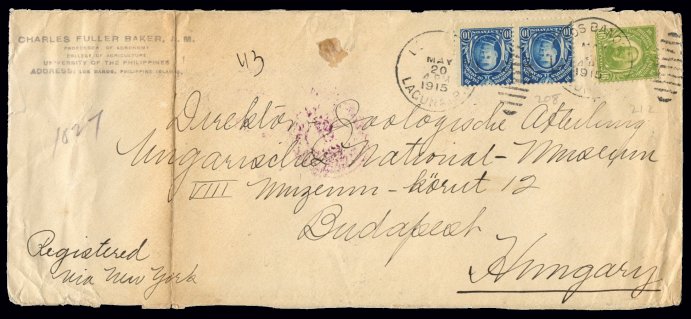 CHARLES FULLER BAKER, A. M.
PROFESSOR OF AGRONOMY
COLLEGE OF AGRICULTURE
UNIVERSITY OF THE PHILIPPINES
ADDRESS: LOS BANOS, PHILIPPINE ISLANDS
43
MAY
20
4 PM
1915
LAGUNA
OS BANO
1915
10 10
10 10
208
212
1827
Direktör Zoologische Abteilung
Ungarisches National-Museum
VIII Muzeum-körut 12
Budapest
Hungary
Registered
via New York